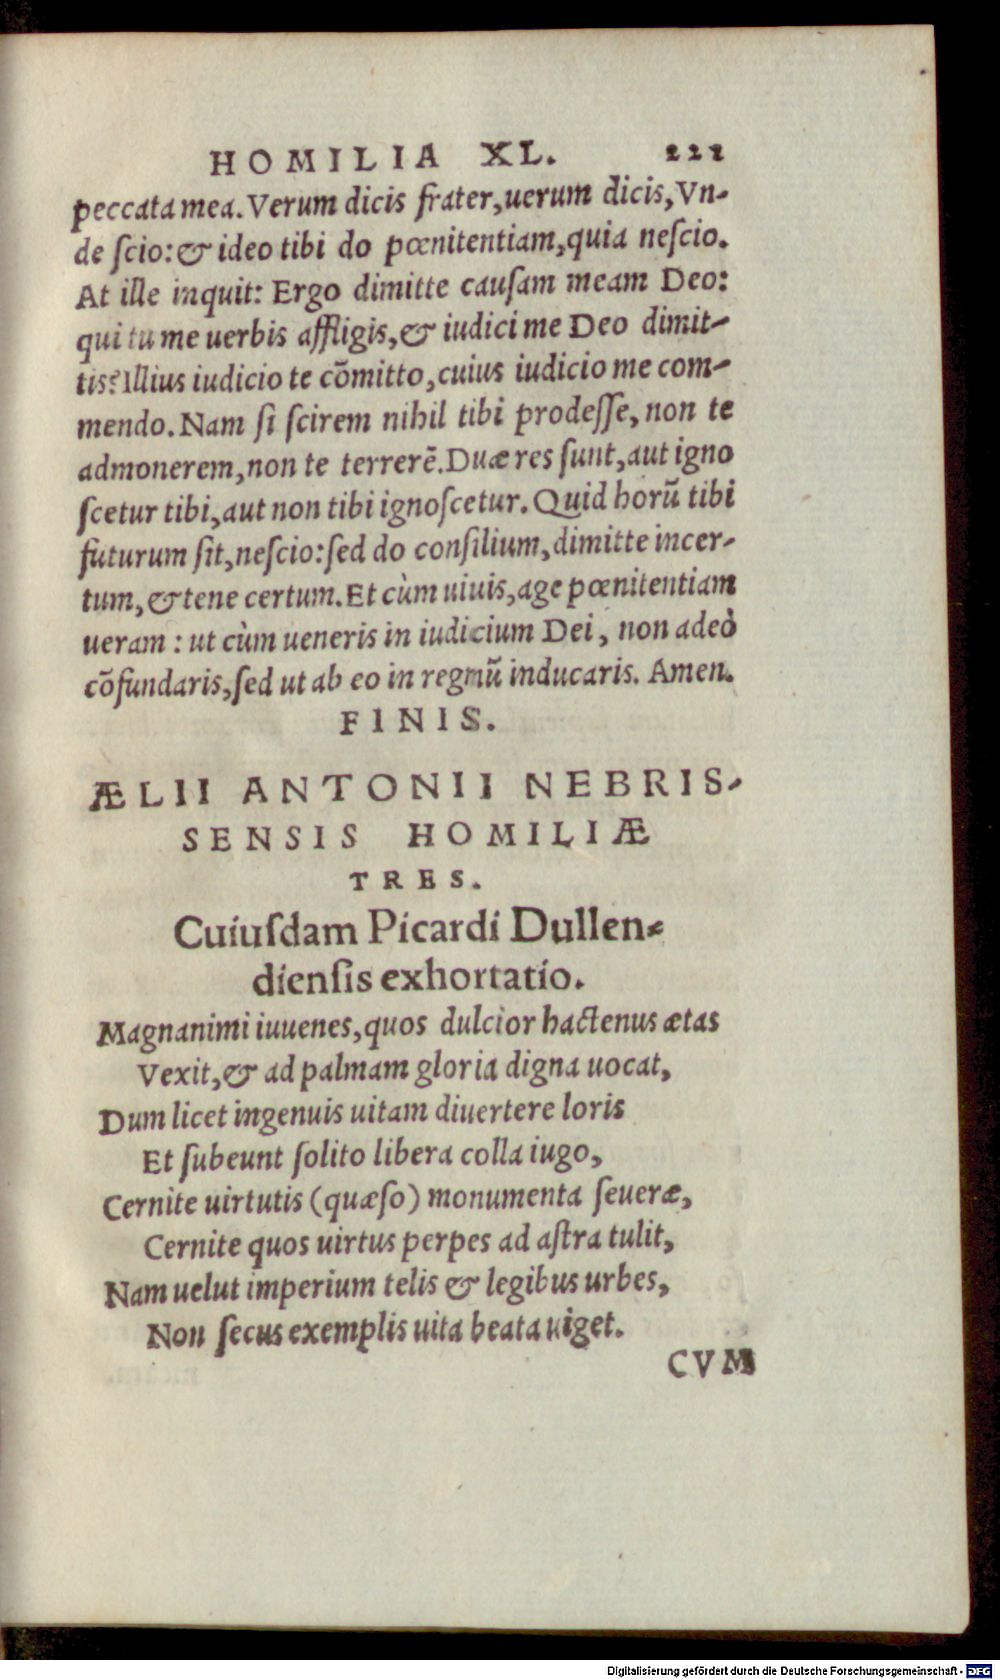 HOMILIA XL. 221
peccata mea. Verum dicis frater, uerum dicis, Vn-
de ſcio: & ideo tibi do pœnitentiam, quia neſcio.
At ille inquit: Ergo dimitte cauſam meam Deo:
qui tu me uerbis affligis, & iudici me Deo dimit-
tis? Illius iudicio te cõmitto, cuius iudicio me com-
mendo. Nam ſi ſcirem nihil tibi prodeſſe, non te
admonerem, non te terrerẽ. Duæ res ſunt, aut igno
ſcetur tibi, aut non tibi ignoſcetur. Quid horũ tibi
futurum ſit, neſcio: ſed do conſilium, dimitte incer-
tum, & tene certum. Et cùm uiuis, age pœnitentiam
ueram: ut cùm ueneris in iudicium Dei, non adeò
cõfundaris, ſed ut ab eo in regnũ inducaris. Amen.
FINIS.
ÆLII ANTONII NEBRIS-
SENSIS HOMILIÆ
TRES.
Cuiuſdam Picardi Dullen-
dienſis exhortatio.
Magnanimi iuuenes, quos dulcior hactenus ætas
Vexit, & ad palmam gloria digna uocat,
Dum licet ingenuis uitam diuertere loris
Et ſubeunt ſolito libera colla iugo,
Cernite uirtutis (quæſo) monumenta ſeueræ,
Cernite quos uirtus perpes ad aſtra tulit,
Nam uelut imperium telis & legibus urbes,
Non ſecus exemplis uita beata uiget.
CVM
Digitalisierung gefördert durch die Deutsche Forschungsgemeinschaft - DFG